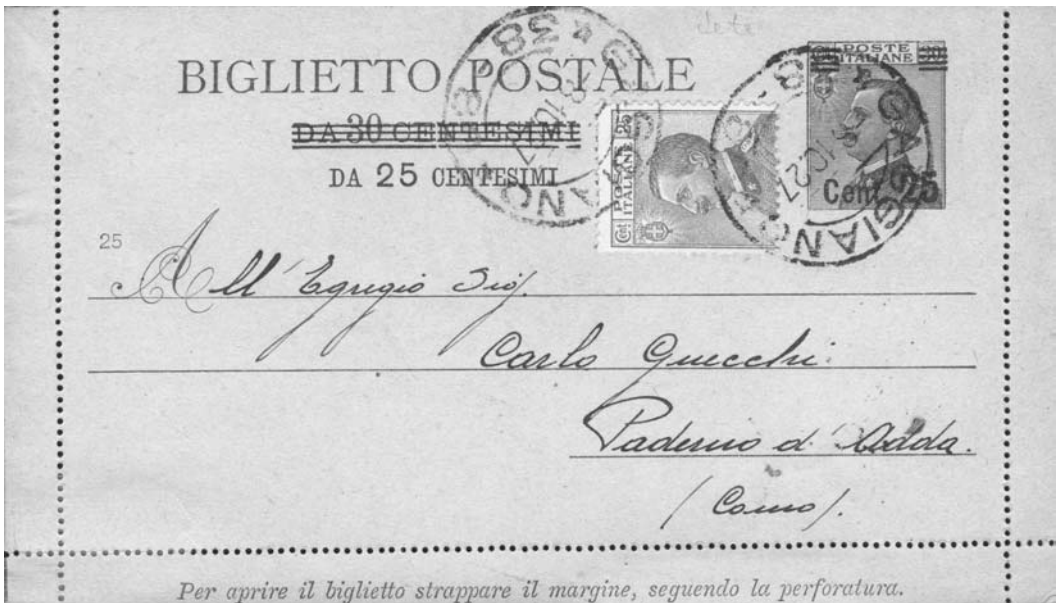 BIGLIETTO POSTALE
DA 30 CENTESIMI
DA 25 CENTESIMI
POSTE
ITALIANE
30
Cent. 25
POSTE
ITALIANE
25
Cent
38
GAGGIANO
25
All' Egregio Sig.
Carlo Guecchi
Paderno d'Adda.
(Como).
Per aprire il biglietto strappare il margine, seguendo la perforatura.